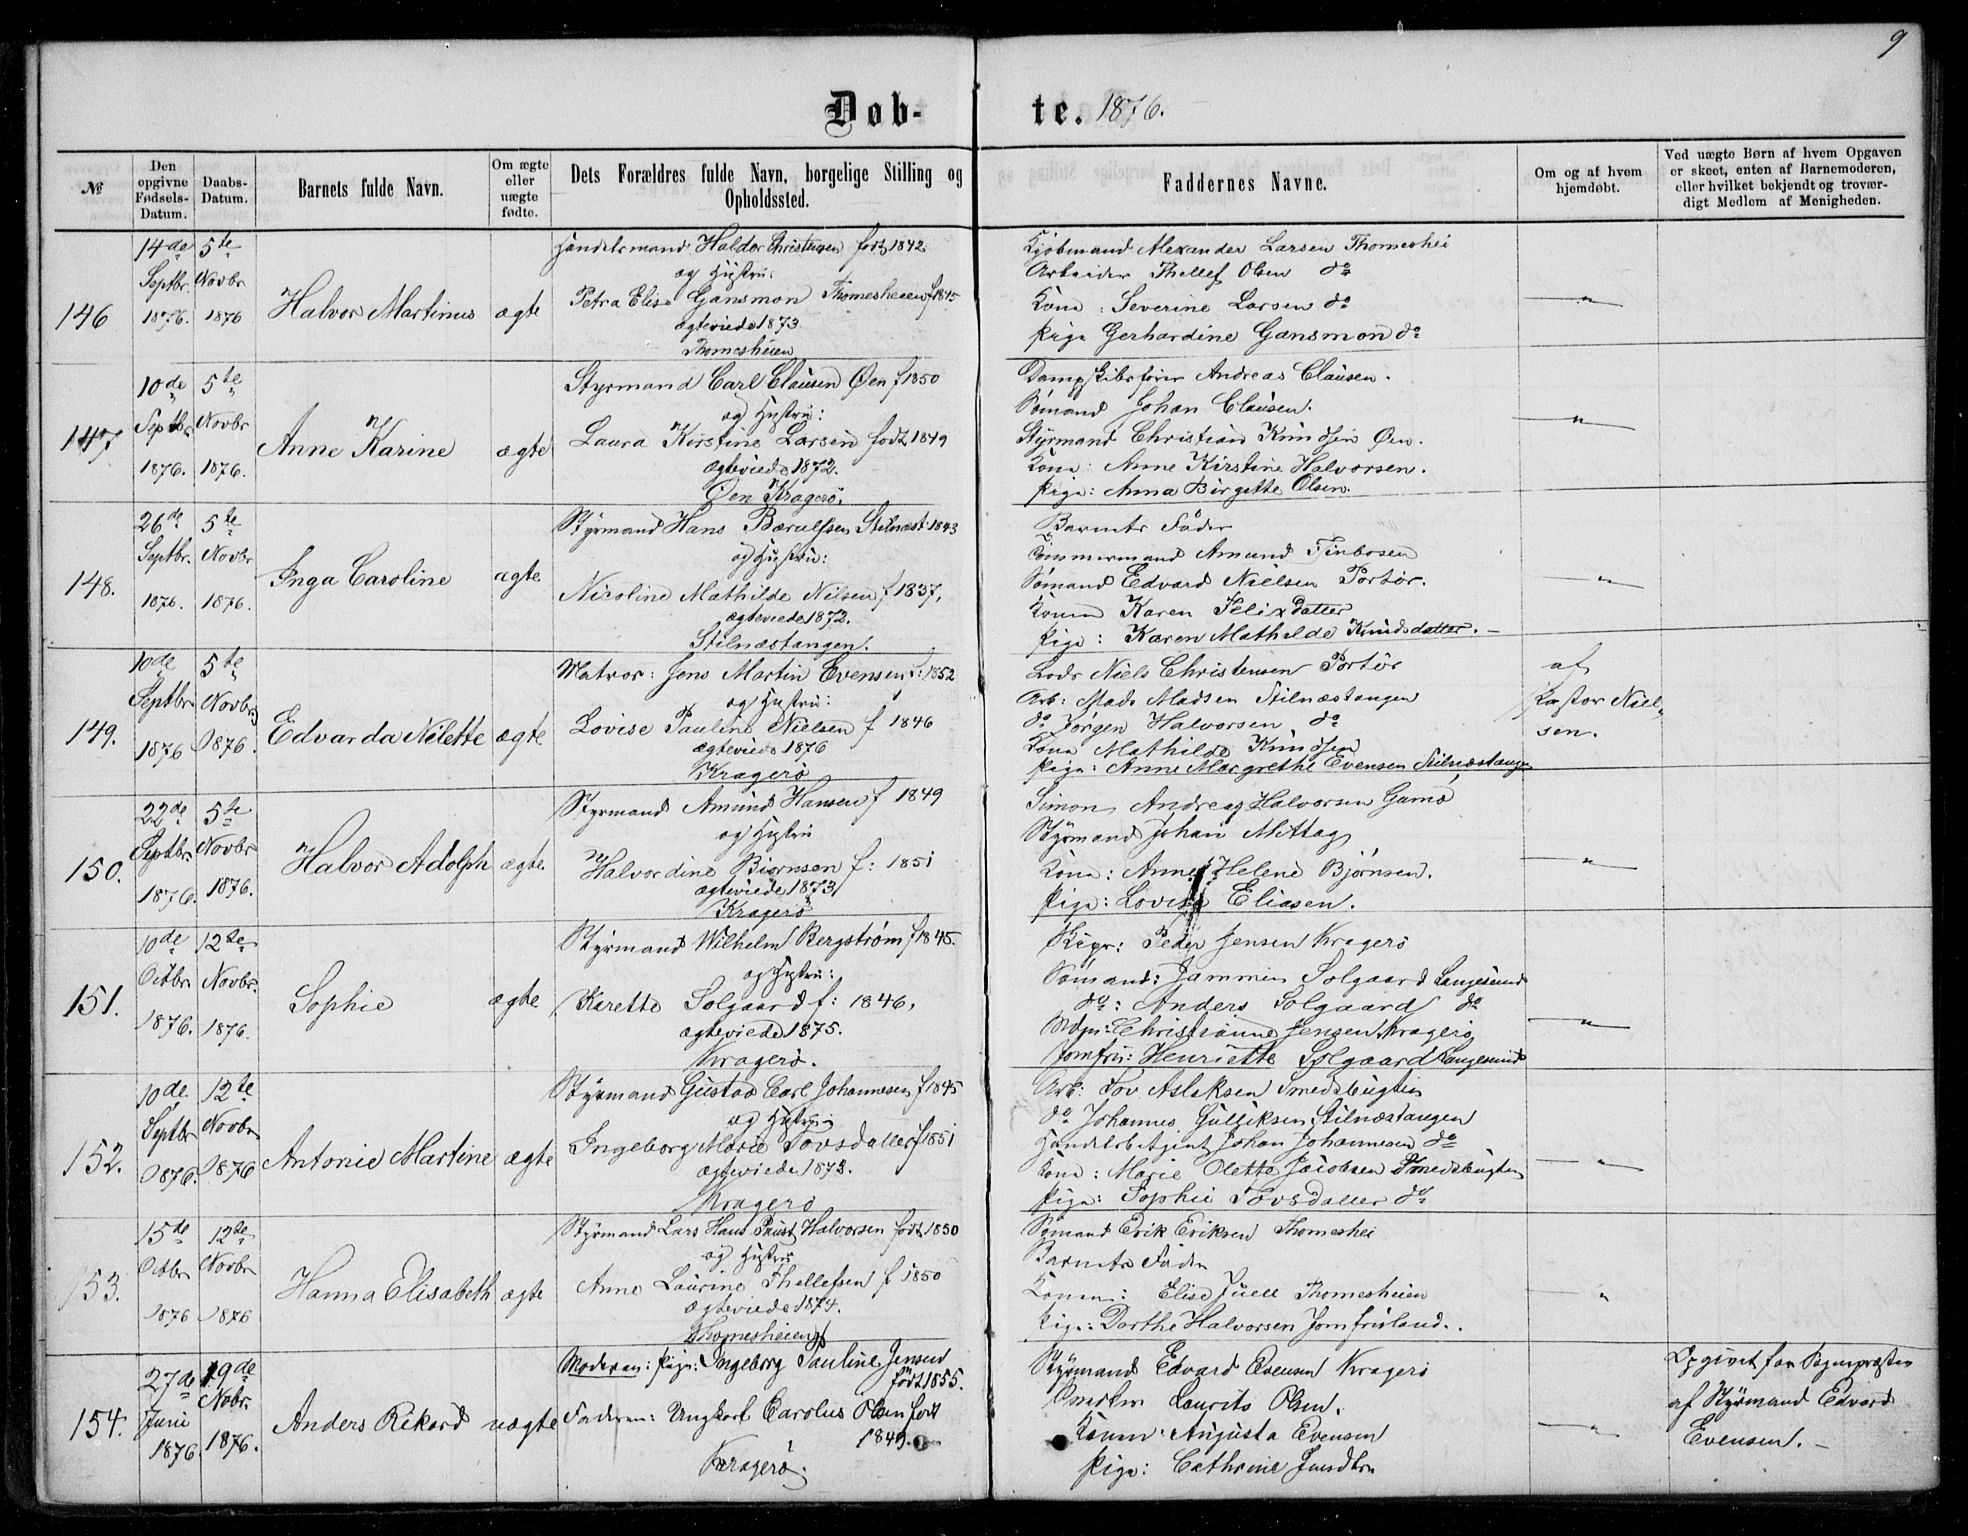 9
Døb-te. 1876.
№
Den opgivne Fødsels-Datum.
Daabs-Datum.
Barnets fulde Navn.
Om ægte eller uægte fødte.
Dets Forældres fulde Navn, borgelige Stilling og Opholdssted.
Faddernes Navne.
Om og af hvem hjemdøbt.
Ved uægte Børn af hvem Opgaven er skeet, enten af Barnemoderen, eller hvilket bekjendt og trovær-digt Medlem af Menigheden.
146
14de Septbr. 1876.
5te Novbr 1876
Halvor Martinus
ægte
Handelsmand Haldor Christensen født 1842
og Hustru:
Petra Elise Gansmon Thomesheien f 1845
ægteviede 1873
Thomesheien
Kjøbmand Alexander Larsen Thomeshei
Arbeider Thellef Olsen do
Kona: Severine Larsen do
Pige Gerhardine Gansmon do
"
147
10de Septbr 1876.
5te Novbr 1876.
Anne Karine
ægte
Styrmand Carl Clausen Øen f 1850
og Hustru:
Laura Kirstine Larsen født 1849
ægteviede 1872.
Øen Kragerø.
Dampskibsfører Andreas Clausen.
Sømand Johan Clausen.
Styrmand Christian Knudsen Øen.
Kona: Anne Kirstine Halvorsen.
Pige: Anna Birgitte Olsen.
"
148.
26de Septbr. 1876.
5te Novbr 1876.
Inga Caroline
ægte
Styrmand Hans Bærulfsen Stilnæst. 1843
og Hustru:
Nicoline Mathilde Nilsen f 1837,
ægteviede 1872.
Stilnæstangen.
Barnets Fader
Tømmermand Amund Finbosen
Sømand Edvard Nielsen Portør.
Kona Karen Felixdatter
Pige: Karen Mathilde Knudsdatter.
"
149.
10de Septbr 1876
5te Novbr 1876.
Edvarda Nilette
ægte
Matros: Jens Martin Evensen f: 1852
og Hustru:
Lovise Pauline Nielsen f 1846
ægteviede 1876
Kragerø
Lods Niels Christensen Portør
Arb: Mads Madsen Stilnæstangen
do Jørgen Halvorsen do
Kona Mathilde Knudsen
Pige: Anne Margrethe Evensen Stilnæstangen
af
Pastor Niel-
sen.
150.
22de Septbr. 1876.
5te Novbr 1876.
Halvor Adolph
ægte
Styrmand Amund Hansen f 1849
og Hustru
Halvordine Biørnsen f: 1851
ægteviede 1873
Kragerø
Simon Andreas Halvorsen Gamø
Styrmand Johan Mittag
Kona: Anne Helene Bjørnsen.
Pige: Lovise Eliasen.
"
151.
10de Octbr 1876.
12te Novbr. 1876.
Sophie
ægte
Styrmand Wilhelm Bergstrøm f 1845.
og Hustru:
Karette Solgaard f: 1846,
ægteviede 1875.
Kragerø.
Skipr: Peder Jensen Kragerø
Sømand: Jammin Solgaard Langesund
do: Anders Solgaard do
Christianne Jensen Kragerø
Jomfru: Henriette Solgaard Langesund
"
152.
10de Septbr 1876.
12te Novbr 1876
Antonie Martine
ægte
Styrmand Gustav Carl Johannesen f 1845
og Hustru
Ingeborg Marie Tovsdatter f 1851
ægteviede 1873.
Kragerø
Arb: Tov Aslaksen Smedsbugten
do Johannes Gulliksen Stilnæstangen
Handelsbetjent Johan Johannesen do
Kona: Marie Olette Jacobsen Smedsbugten
Pige: Sophie Tovsdatter do
"
153.
15de Octbr 1876
12te Novbr 1876
Hanna Elisabeth
ægte
Styrmand Lars Hans Faust Halvorsen født 1850
og Hustru
Anne Laurine Thellefsen f 1850
ægteviede 1874.
Thomesheien
Sømand Erik Eriksen Thomeshei
Barnets Fader
Konen: Elise Juell Thomesheien
Pige: Dorthe Halvorsen Jomfruland.
"
154.
27de Juni 1876.
19de Nobr. 1876.
Anders Rikard
uægte
Moderen: Pige: Ingeborg Pauline Jensen
født 1855.
Faderen: Ungkarl Carolus Olsen født
1849.
Kragerø.
Styrmand Edvard Evensen Kragerø
Laurits Olsen.
Konen Augusta Evensen
Pige: Cathrine Jensdtr
"
Opgivet for Sognepræsten
af Styrmand Edvard
Evensen.